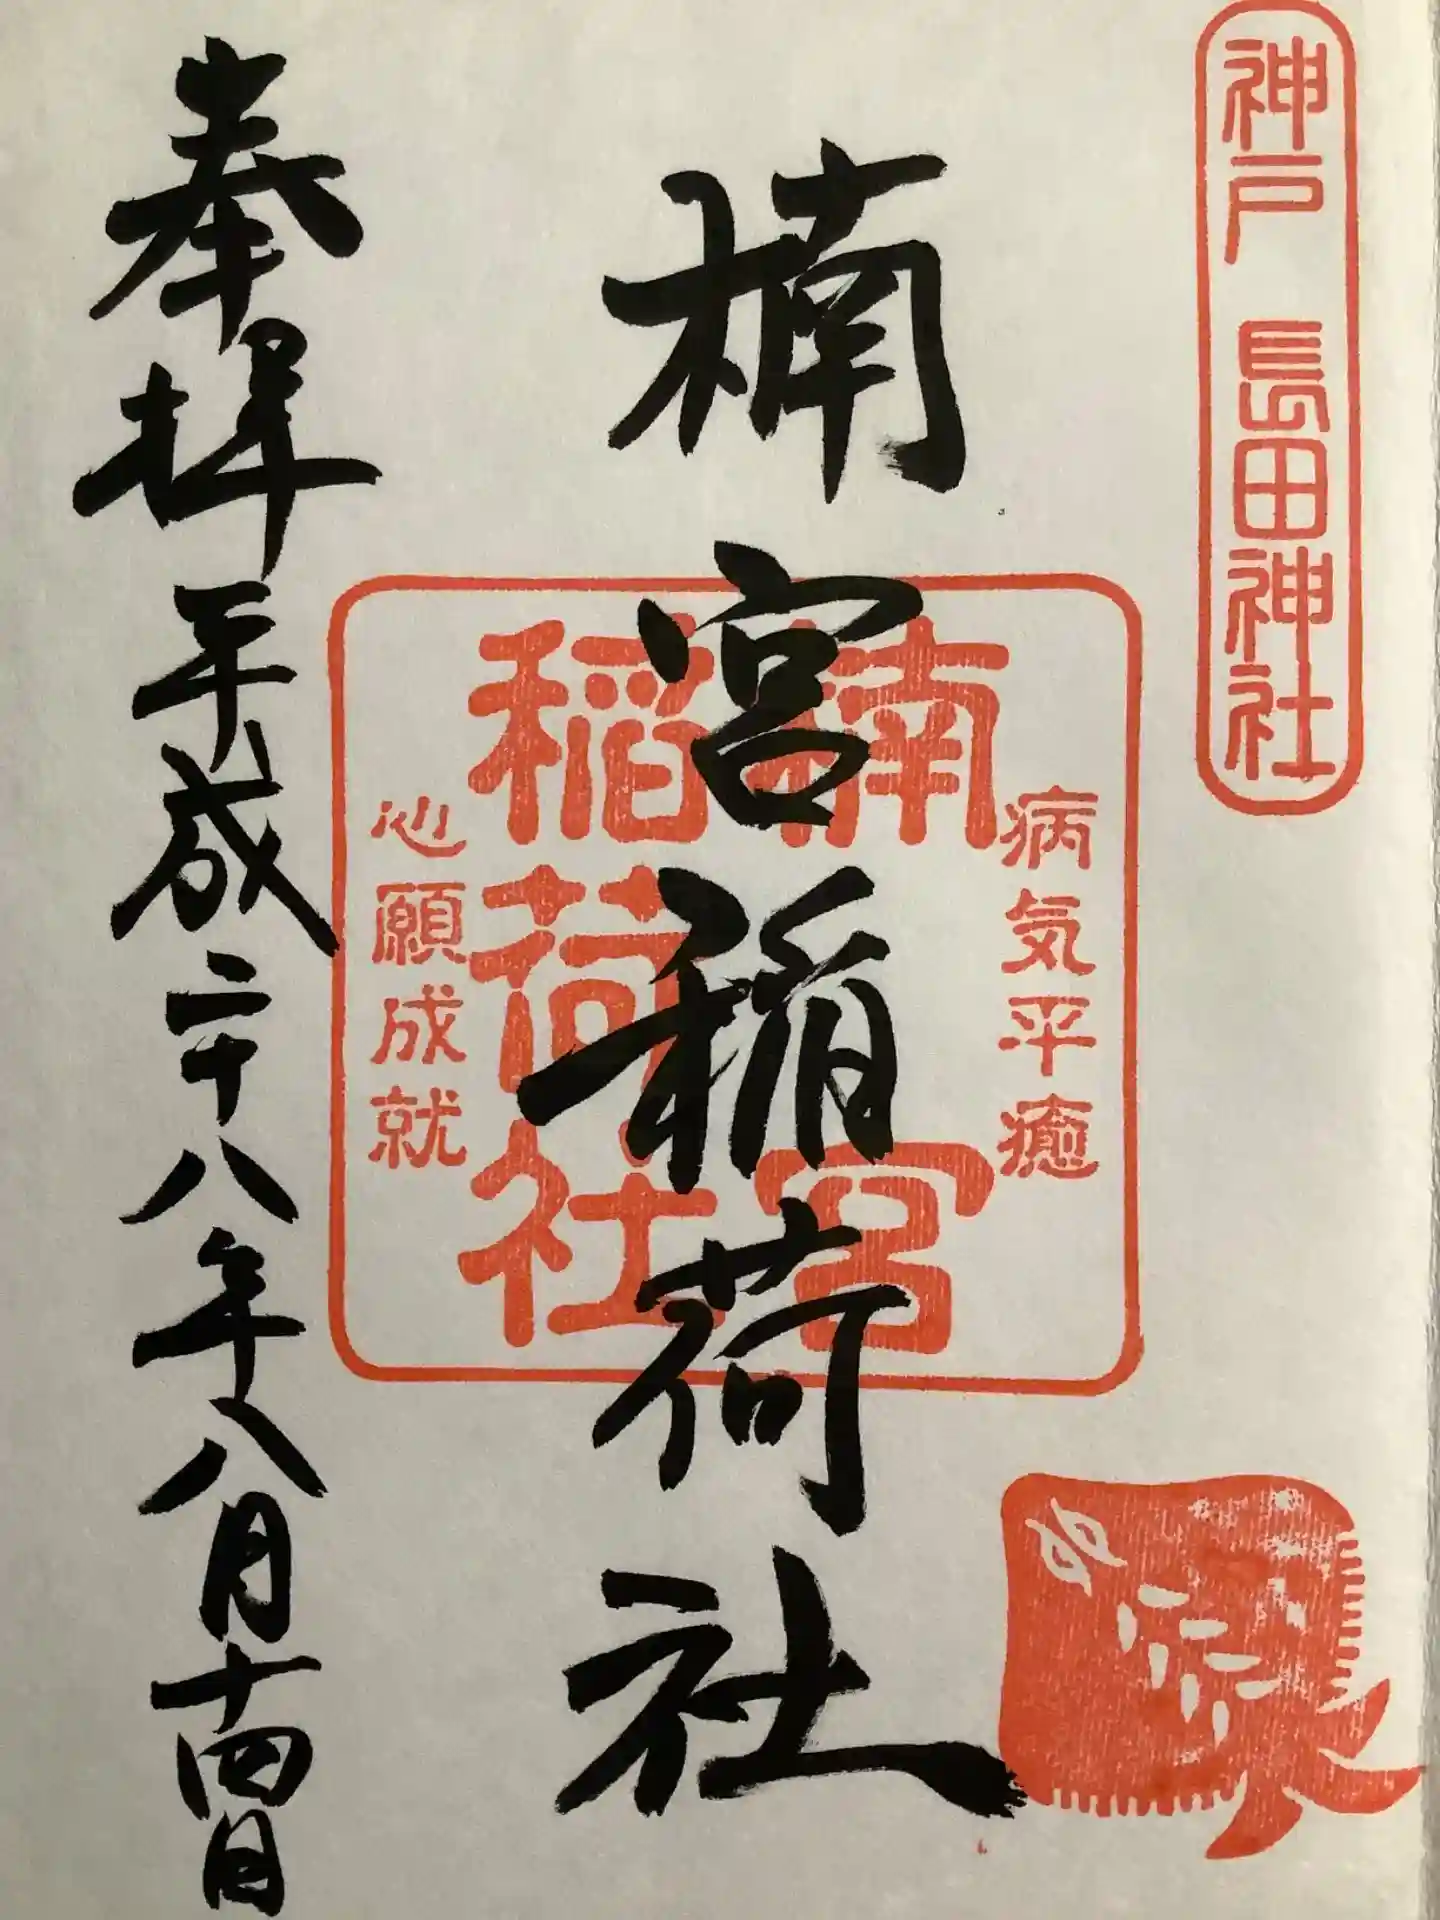 神戸 長田神社
病気平癒
楠宮
稲荷社
心願成就
楠宮稲荷社
奉拝 平成二十八年八月十四日